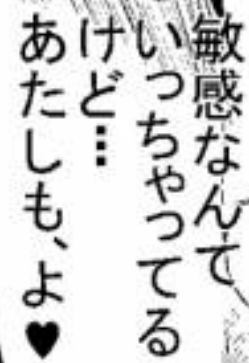 敏感なんて、
いっちゃってる
けど…
あたしも、よ♥